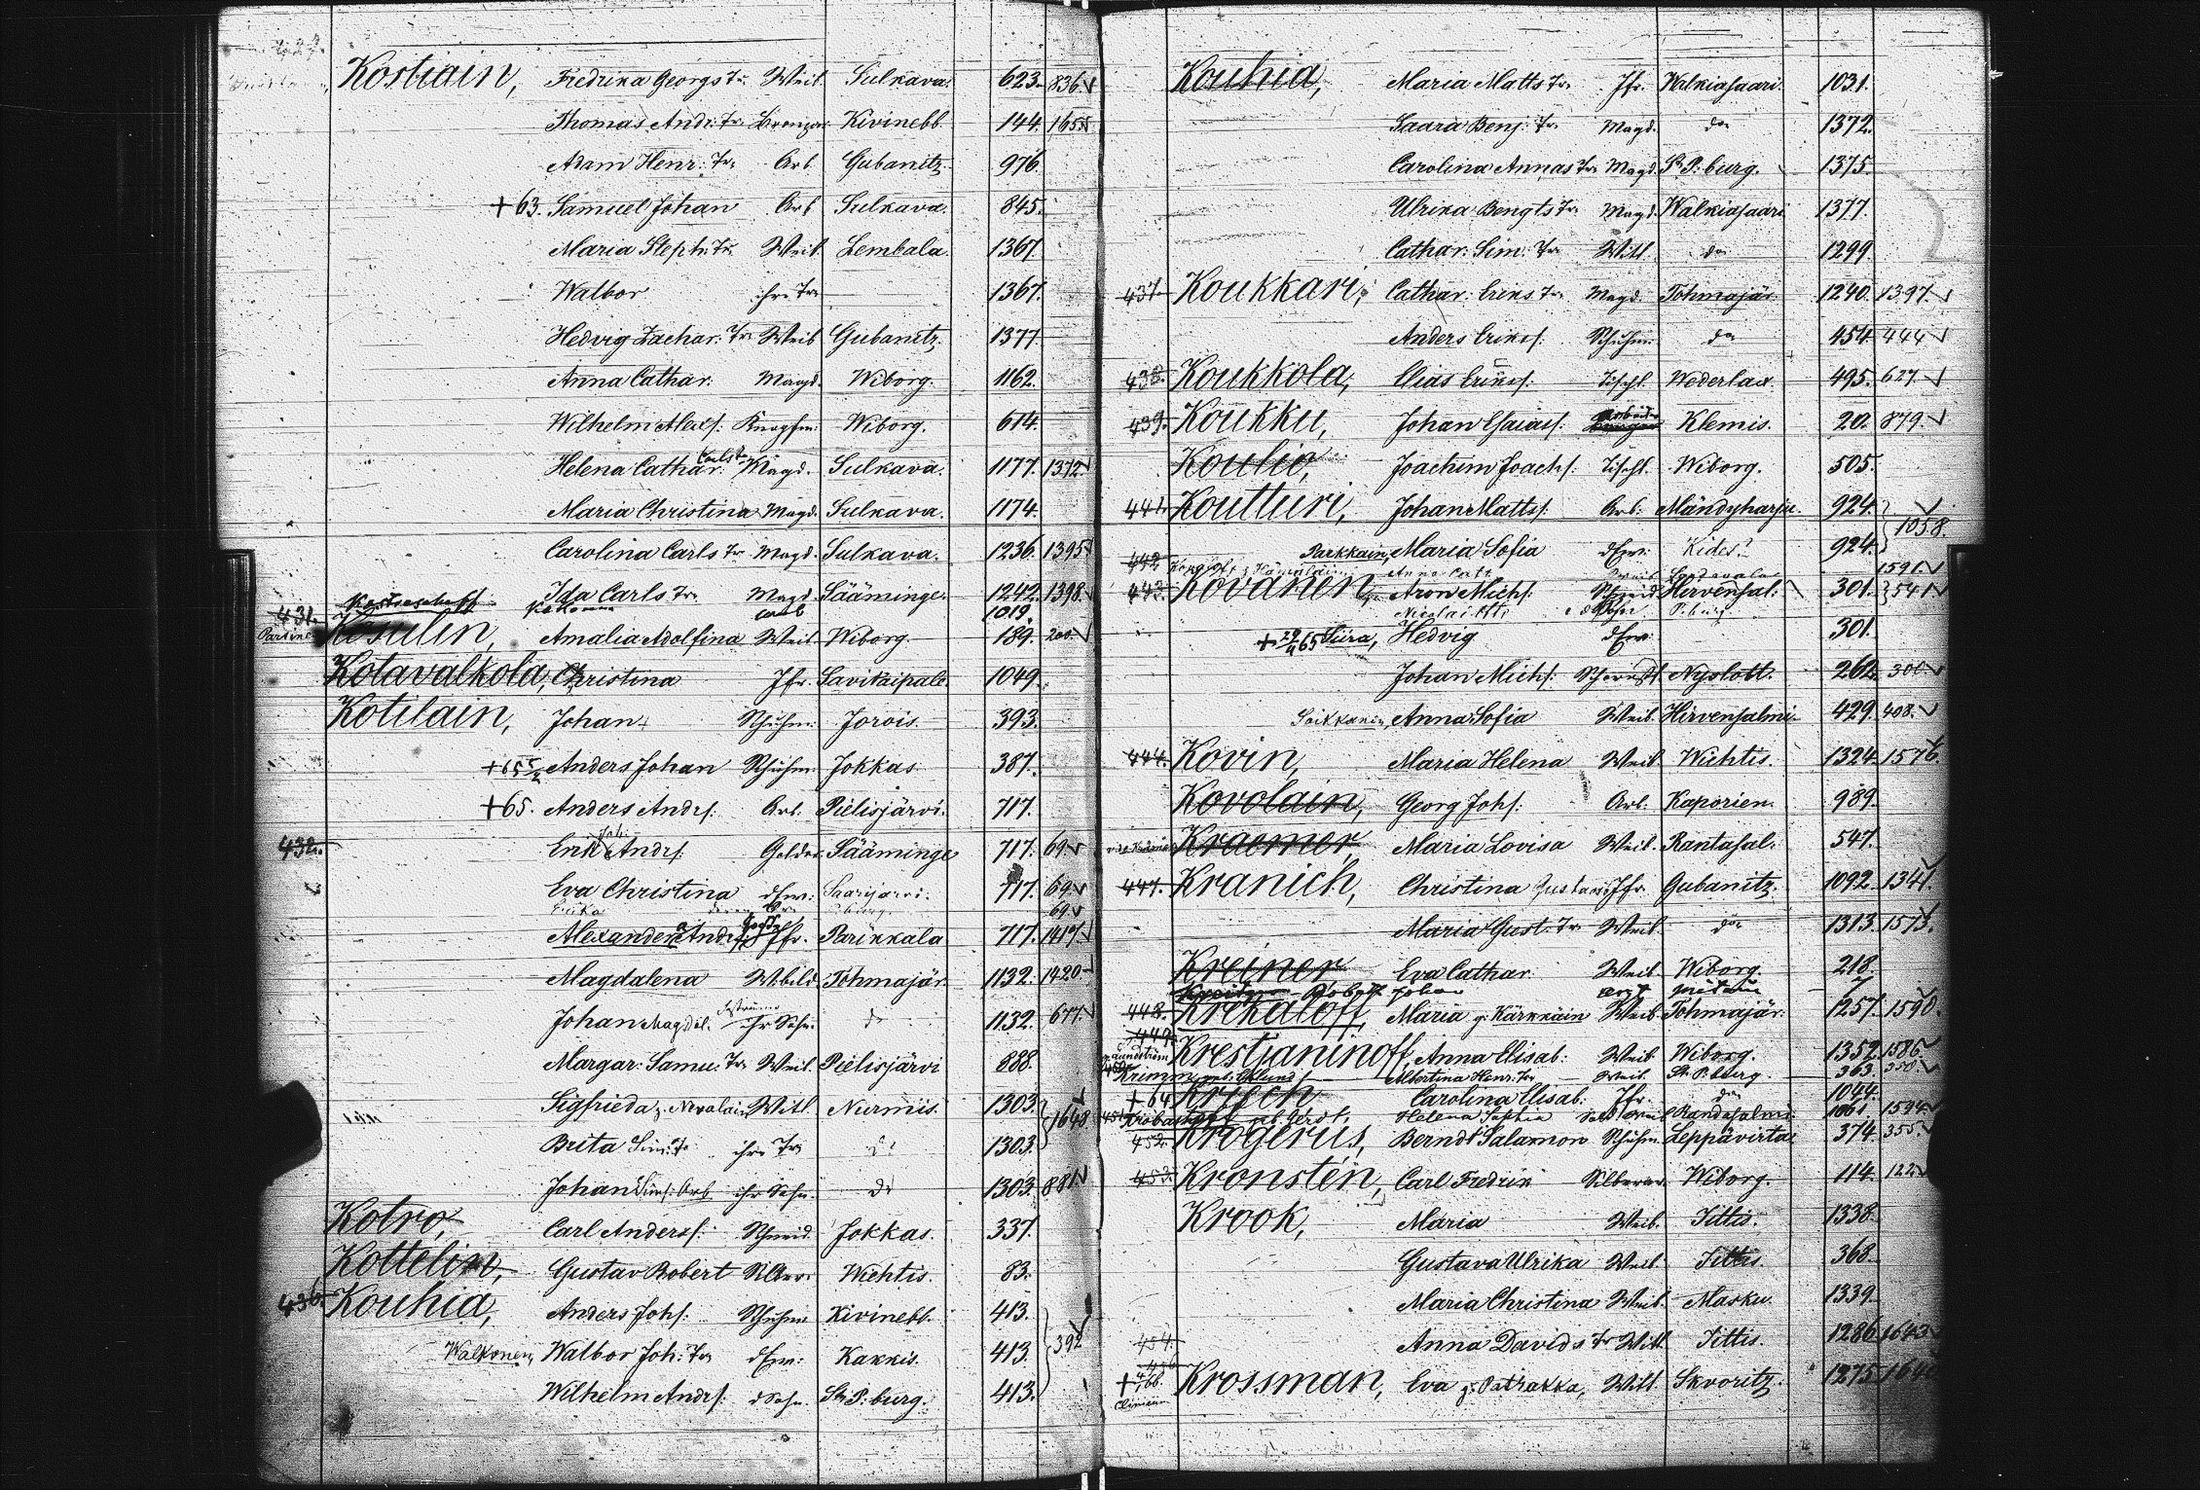 Kostiain, Fredrika Georgs Tr. Weib. Sulkava. 623. 836.
Thomas Andr: Kivinebb. 144. 1655
Adam Henr: Arb. Gubanitz. 976.
+63. Samuel Johan Arb Sulkava. 845.
Maria Steph: Tr. Weib. Lembala. 1367.
Walbor ihre Tr 1367.
Hedvig Zachar: Tr. Weib Gubanitz. 1377.
Anna Cathar: Magd. Wiborg. 1162.
Wilhelm Alexs: Wiborg. 614.
Helena Cathar: Carls Tr Magd. Sulkava. 1177. 1372
Maria Christina Magd. Sulkava. 1174.
Carolina Carls Tr Magd. Sulkava. 1236. 1395
Ida Carls Tr. Magd. Sääminge. 1242. 1398.
1019.
431. Amalia Adolfina Weib. Wiborg. 189. 200.
Kotavalkola, Christina Jfr. Savitaipale. 1049.
Kotilain, Johan Schuhm: Jorois. 393.
+65 Anders Johan Schuhm: Jokkas. 387.
+65. Anders Andrs: Arb. Pielisjärvi. 717.
432. Erik Joh: Andrs: Sääminge 717. 69.
Eva Christina d Frau: Saarijarvi. 717. 69.
Erika 69.
Alexandera Andrs: Jfr. Parikkala 717. 1417.
Magdalena Tohmajär. 1132. 1420
Johan Magdal. ihr Sohn. do 1132. 677.
Margar: Samu: Tr. Weib. Pielisjärvi 888.
Sigfrieda g. Nevalain Witt. Nurmis. 1303. 1648
Brita Sim: Tr ihre Tr do 1303.
Johan Sims: Arb ihr Sohn. do 1303. 881
Kotro, Carl Anderss: Schneid. Jokkas. 337.
Kottelin, Gustav Robert Wichtis. 83.
436. Kouhia, Anders Johs: Schuhm Kivinebb. 413. 392
Walkonen, Walbor Joh: Tr d Frau: Kakkis. 413.
Wilhelm Andrs: d Sohn. St. P: burg. 413.
Kouhia, Maria Matts Tr. Jfr. Walkiasaari. 1031.
Saara Benj: Tr. Magd. do 1372.
Carolina Annas Tr. Magd. St. P: burg. 1375.
Ulrika Bengts Tr. Magd. Walkiasaari 1377.
Cathar: Sim: Tr Witt. do 1299.
437. Koukkari, Cathar: Eriks Tr. Magd. Tohmajär. 1240. 1397.
Anders Eriks: Schuhm: do 454. 444
438. Koukkola, Elias Eriks: Tischl. Wederlax. 495. 627.
439. Koukku, Johan Esaias: Klemis. 20. 879.
Koulio, Joachim Joachs: Tischl. Wiborg. 505.
441. Koutturi, Johan Matts: Arb: Mändyharju. 924. 1058.
442 Parkkain, Maria Sofia d Frau: Kides? 924.
Anna Cath 1591.
443. Kovanen, Aron Michs: Schneid Hirvensal: 301. 541
Nicolai
+ 29/4 65 Siira, Hedvig d Frau: 301.
Johan Michs: Nyslott. 262. 300.
Soikkanen, Anna Sofia Weib. Hirvensalmi. 429. 408.
444. Kovin, Maria Helena Weib. Wichtis. 1324. 1576
Kovolain, Georg Johs: Arb. Kaporien. 989.
Kraemer Maria Lovisa Weib. Rantasal. 547.
447. Kranich, Christina Gustavs Jfr. Gubanitz. 1092. 1341.
Maria Gust: Tr. Weib. do 1313. 1573.
Kreiner Eva Cathar. Weib. Wiborg. 218.
Johan
448. Krekaloff, Maria g: Kärkkäin Weib. Tohmajär. 1257. 1590.
449. Krestjaninoff, Anna Elisab: Weib. Wiborg. 1352. 1586.
Krimm Albertina Henr: Tr. Weib. St. P: burg. 363. 350.
+64 Krisch Carolina Elisab: Jfr. do 1044.
Helena Sophia Randasalmi 1061. 1594
452. Krogerus, Berndt Salamon Schuhm. Leppävirta. 374. 355.
453. Kronstén, Carl Fredrik Silberar. Wiborg. 114. 122
Krook, Maria Weib. Jittis. 1338.
Gustava Ulrika Weib. Jittis. 368.
Maria Christina Weib. Masku. 1339.
454. Anna Davids Tr Witt. Jittis. 1286. 1643
456
+ 66. Krossman, Eva g: Patrakka, Witt. Skvoritz. 1275